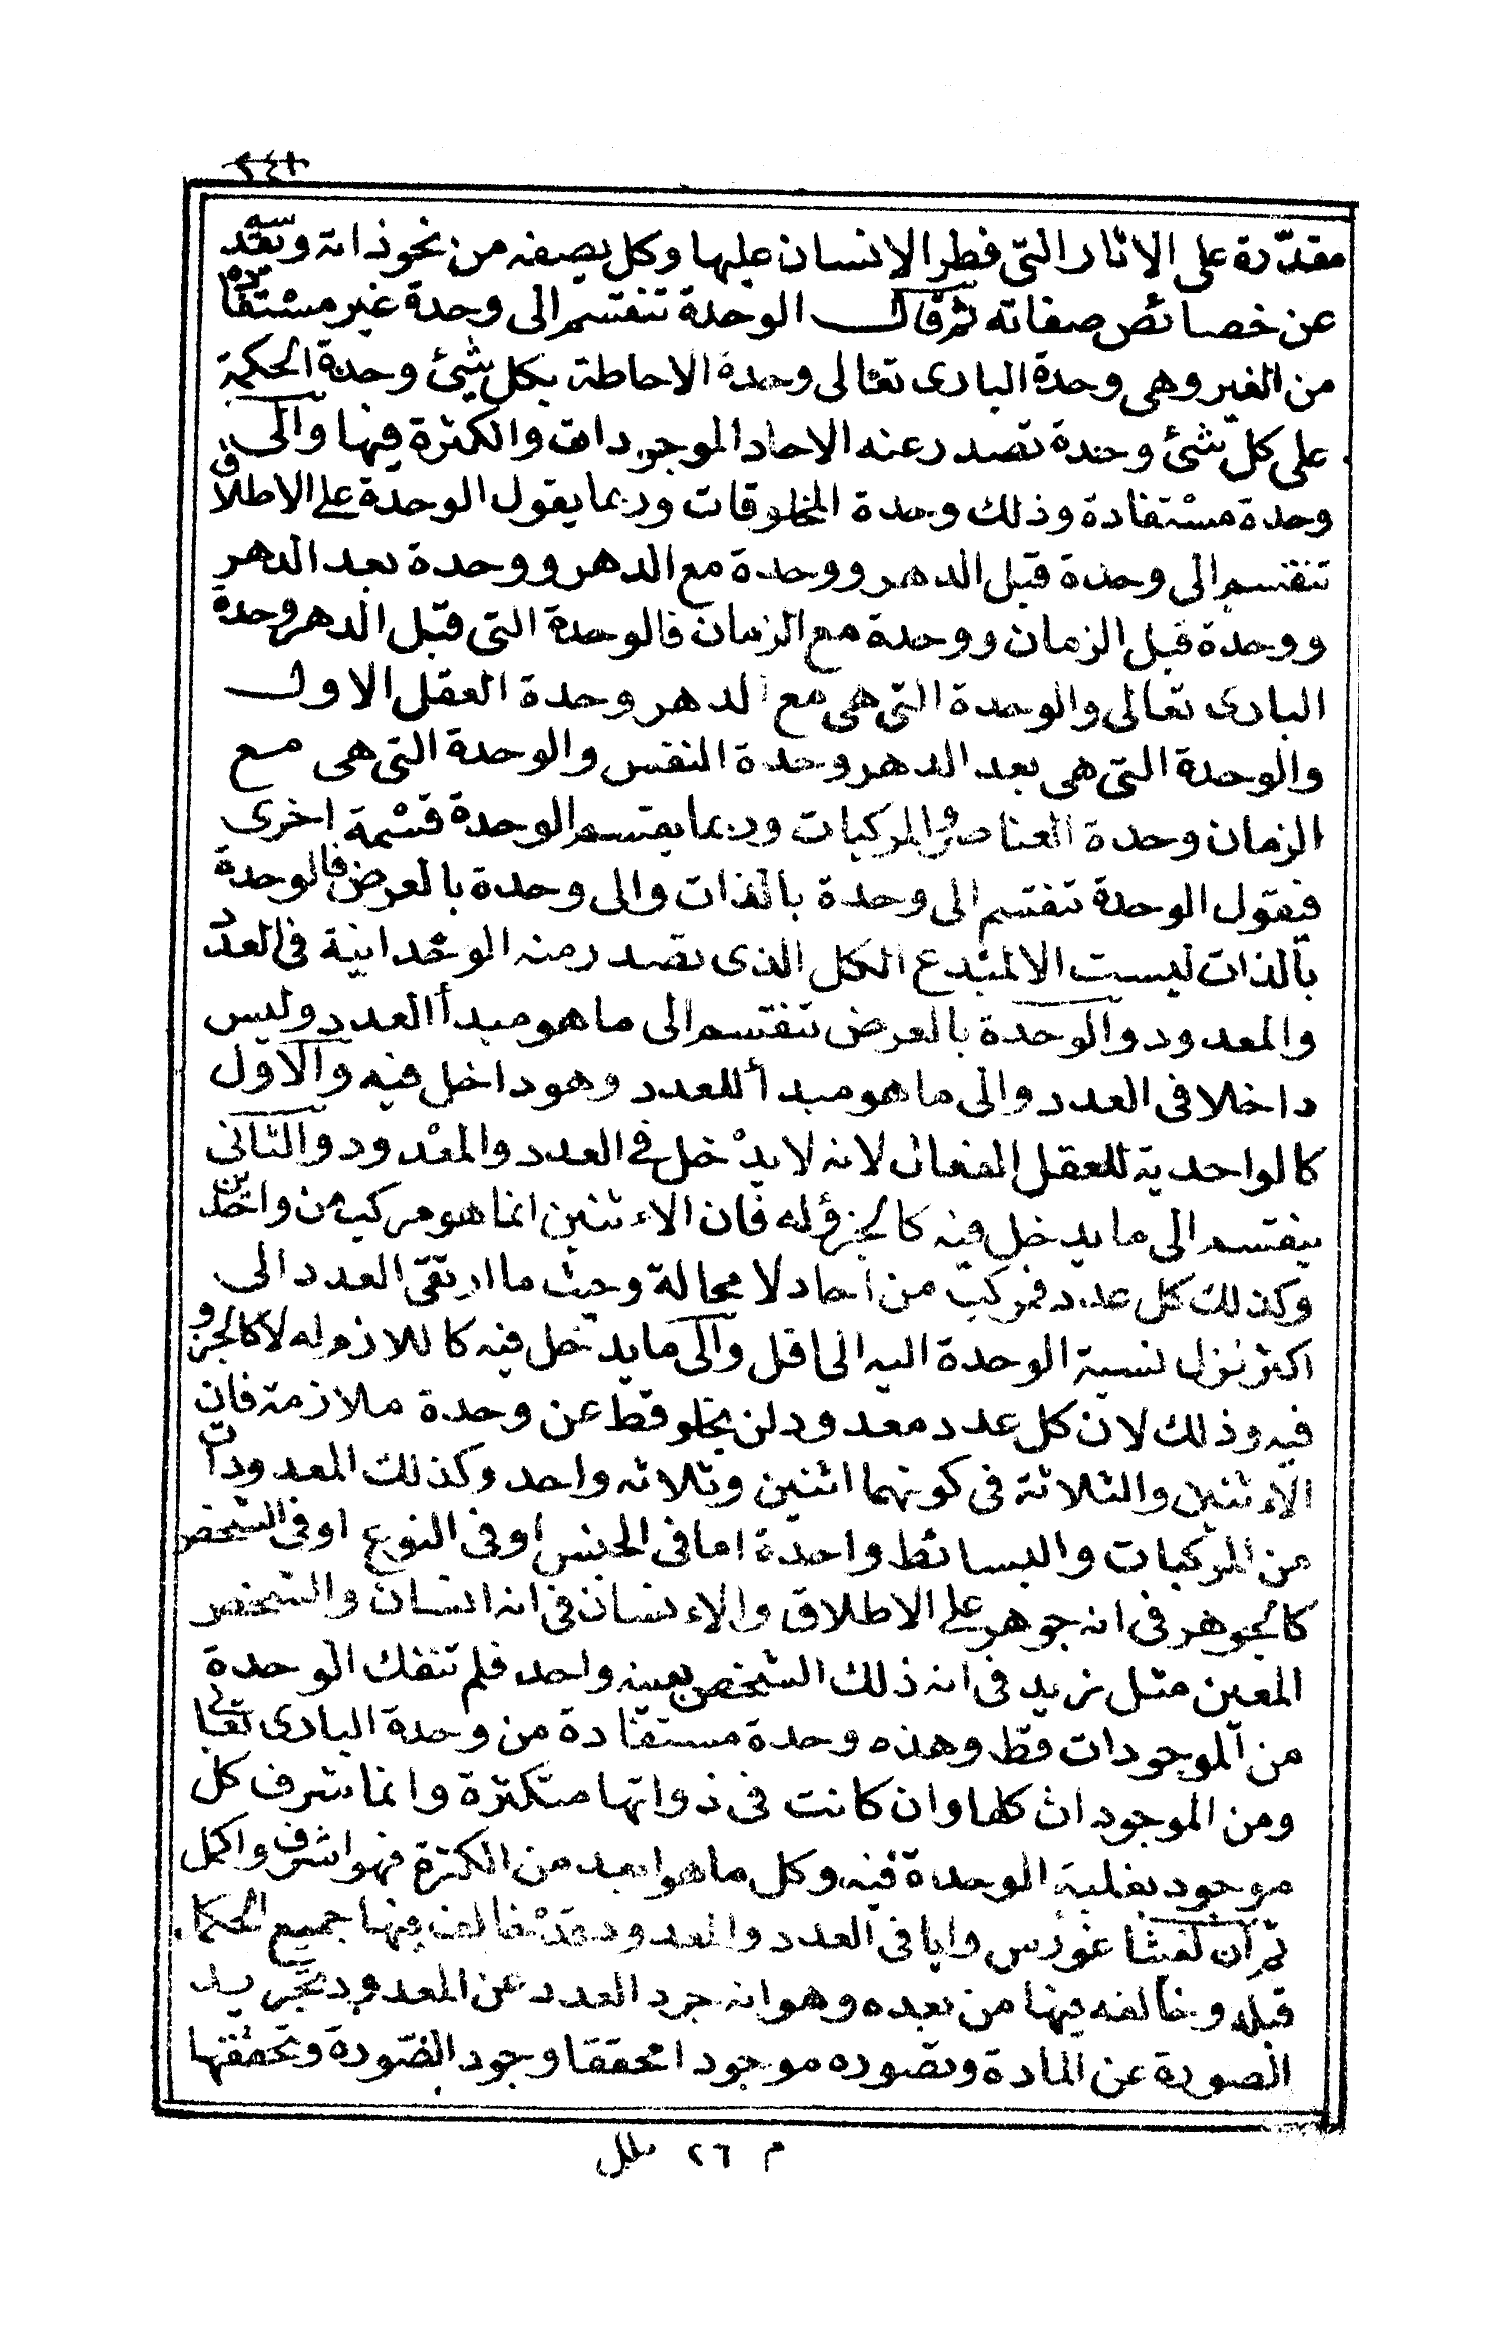 مقدّرة على الاثار التى فطر الانسان عليها وكل يصفه من نحو ذاته وتقدسه
عن خصائص صفاته ثم قال الوحدة تنقسم الى وحدة غير مستفادة
من الغير وهى وحدة البارى تعالى وحدة الاحاطة بكل شئ وحدة الحكمة
على كل شئ وحدة تصدر عنه الاحاد الموجودات والكثرة فيها والى
وحدة مستفادة وذلك وحدة المخلوقات وربما يقول الوحدة على الاطلاق
تنقسم الى وحدة قبل الدهر ووحدة مع الدهر ووحدة بعد الدهر
ووحدة قبل الزمان ووحدة مع الزمان فالوحدة التى قبل الدهر وحدة
البارى تعالى والوحدة التى هى مع الدهر وحدة العقل الاول
والوحدة التى هى بعد الدهر وحدة النفس والوحدة التى هى مع
الزمان وحدة العناصر والمركبات وربما يقسم الوحدة قسمة اخرى
فيقول الوحدة تنقسم الى وحدة بالذات والى وحدة بالعرض فالوحدة
بالذات ليست الا لمبدع الكل الذى تصدر منه الوحدانية فى العدد
والمعدود والوحدة بالعرض تنقسم الى ما هو مبدأ العدد وليس
داخلا فى العدد والى ما هو مبدأ للعدد وهو داخل فيه والاول
كالواحدية للعقل الفعال لانه لا يدخل فى العدد والمعدود والثانى
ينقسم الى ما يدخل فيه كالجزؤ له فان الاءثنين انما هو مركب من واحدين
وكذلك كل عدد فمركب من احاد لا محالة وحيث ما ارتقى العدد الى
اكثر نزل نسبة الوحدة اليه الى اقل والى ما يدخل فيه كاللازم له لا كالجزو
فيه وذلك لان كل عدد معدود لن يخلو قط عن وحدة ملازمة فان
الاءثنين والثلاثة فى كونهما اثنين وثلاثه واحد وكذلك المعدودات
من المركبات والبسائط واحدة اما فى الجنس او فى النوع او فى الشخص
كالجوهر فى انه جوهر على الاطلاق والاءنسان فى انه انسان والشخص
المعين مثل زيد فى انه ذلك الشخص بعينه واحد فلم تنفك الوحدة
من الموجودات قط وهذه وحدة مستفادة من وحدة البارى تعالى
ومن الموجودات كلها وان كانت فى ذواتها متكثرة وانما شرف كل
موجود بغلبة الوحدة فيه وكل ما هو ابعد من الكثرة فهو اشرف واكمل
ثم ان لفيثاغورس رايا فى العدد والمعدود قد خالف فيها جميع الحكما
قبله وخالفه فيها من بعده وهو انه جرد العدد عن المعدود تجريد
الصورة عن المادة وتصوره موجودا محققا وجود الصورة وتحققها
م ٢٦ ملل